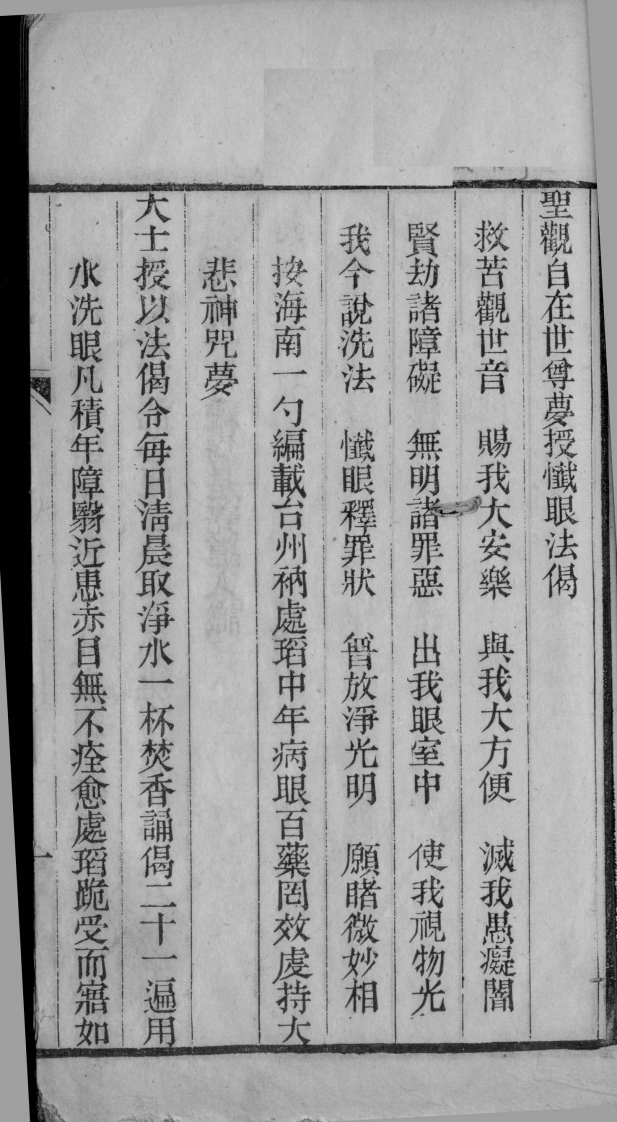 聖觀自在世尊夢授懺眼法偈
救苦觀世音　賜我大安樂　與我大方便　滅我愚癡闇
賢劫諸障礙　無明諸罪惡　出我眼室中　使我視物光
我今說洗法　懺眼釋罪狀　普放淨光明　願睹微妙相
按海南一勺編載台州衲處瑫中年病眼百藥罔效虔持大
悲神咒夢
大士授以法偈令每日清晨取淨水一杯焚香誦偈二十一遍用
水洗眼凡積年障翳近患赤目無不痊愈處瑫跪受而寤如
一